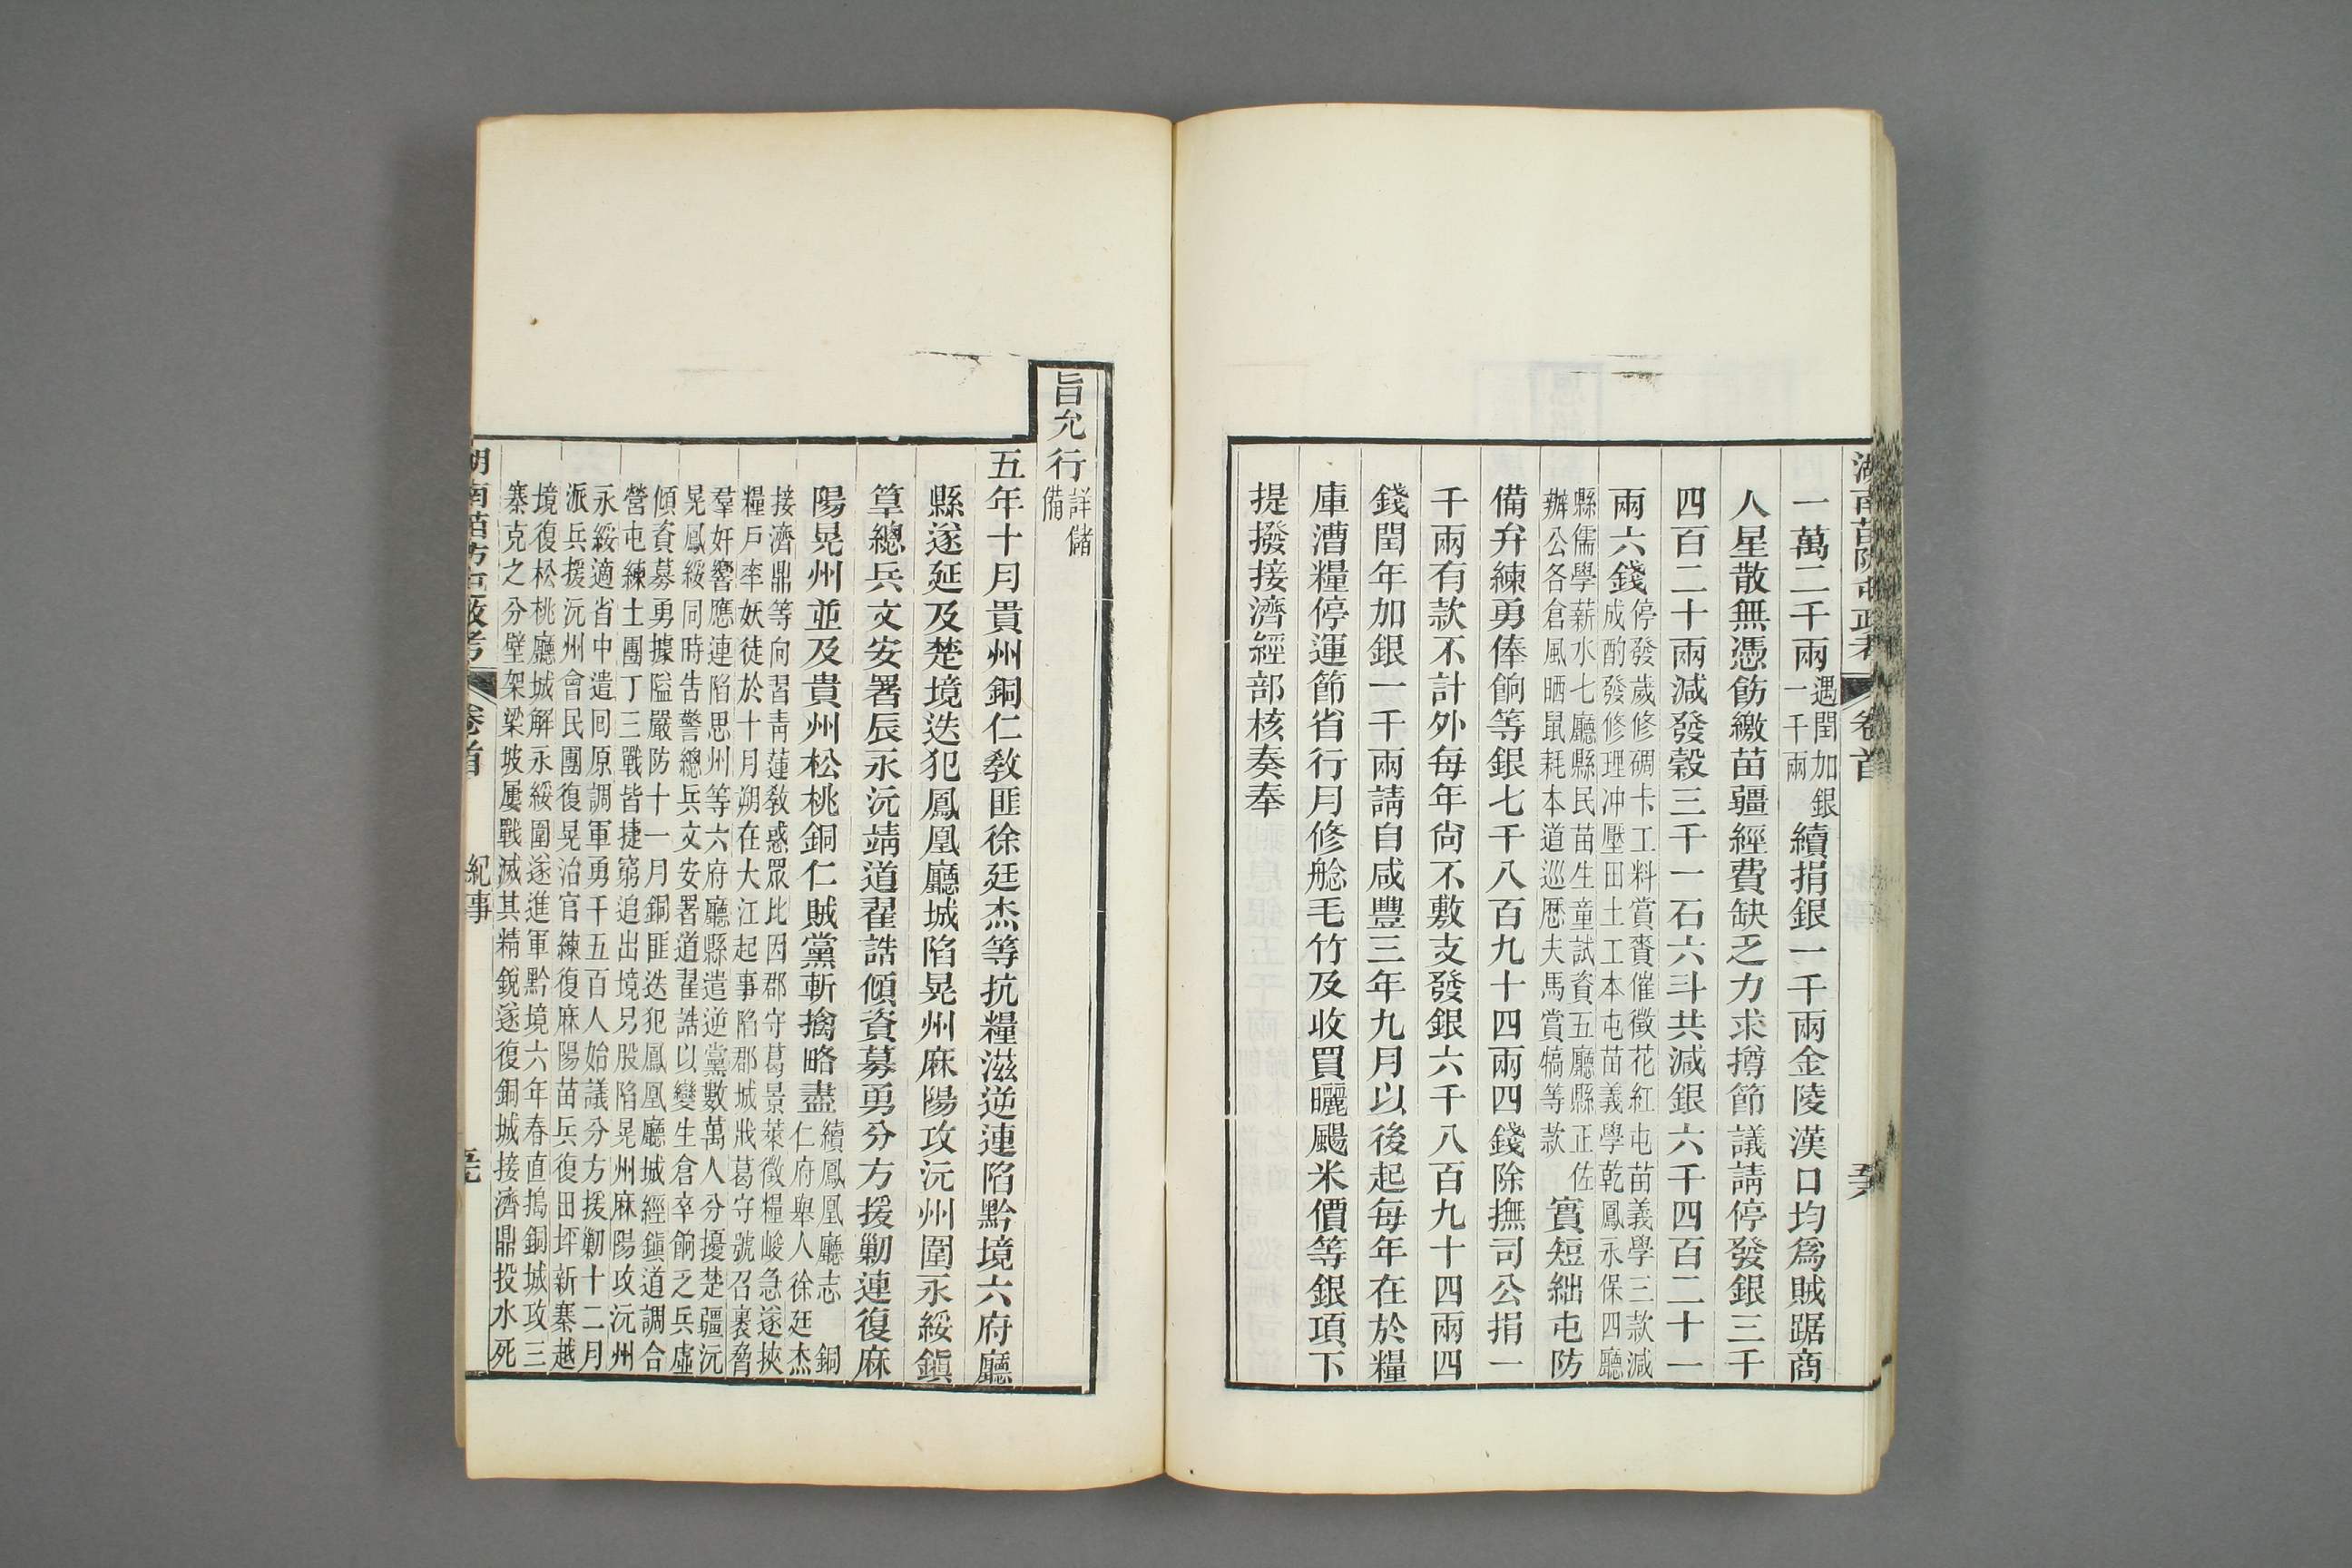 湖南苗防屯政考 卷首
一萬二千兩遇閏加銀一千兩續捐銀一千兩金陵漢口均爲賊踞商
人星散無憑飭繳苗疆經費缺乏力求撙節議請停發銀三千
四百二十兩減發穀三千一石六斗共減銀六千四百二十一
兩六錢停發歲修碉卡工料賞賚催徵花紅屯苗義學三款減成酌發修理冲壓田土工本屯苗義學乾鳳永保四廳
縣儒學薪水七廳縣民苗生童試資五廳縣正佐辦公各倉風晒鼠耗本道巡歷夫馬賞犒等款實短絀屯防
備弁練勇俸餉等銀七千八百九十四兩四錢除撫司公捐一
千兩有款不計外每年尙不敷支發銀六千八百九十四兩四
錢閏年加銀一千兩請自咸豐三年九月以後起每年在於糧
庫漕糧停運節省行月修艌毛竹及收買曬颺米價等銀項下
提撥接濟經部核奏奉
旨允行詳儲備
五年十月貴州銅仁教匪徐廷杰等抗糧滋逆連陷黔境六府廳
縣遂延及楚境迭犯鳳凰廳城陷晃州麻陽攻沅州圍永綏鎭
筸總兵文安署辰永沅靖道翟誥傾資募勇分方援勦連復麻
陽晃州並及貴州松桃銅仁賊黨斬擒略盡續鳳凰廳志 銅仁府舉人徐廷杰
接濟鼎等向習靑蓮敎惑眾比因郡守葛景萊徵糧峻急遂挾
糧戶率妖徒於十月朔在大江起事陷郡城戕葛守號召裹脅
羣奸響應連陷思州等六府廳縣遣逆黨數萬人分擾楚疆沅
晃鳳綏同時告警總兵文安署道翟誥以變生倉卒餉乏兵虛
傾資募勇據隘嚴防十一月銅匪迭犯鳳凰廳城經鎭道調合
營屯練土團丁三戰皆捷窮追出境另股陷晃州麻陽攻沅州
永綏適省中遣回原調軍勇千五百人始議分方援勦十二月
派兵援沅州會民團復晃治官練復麻陽苗兵復田坪新寨越
境復松桃廳城解永綏圍遂進軍黔境六年春直搗銅城攻三
寨克之分壁架梁坡屢戰滅其精銳遂復銅城接濟鼎投水死
湖南苗防屯政考 卷首 紀事